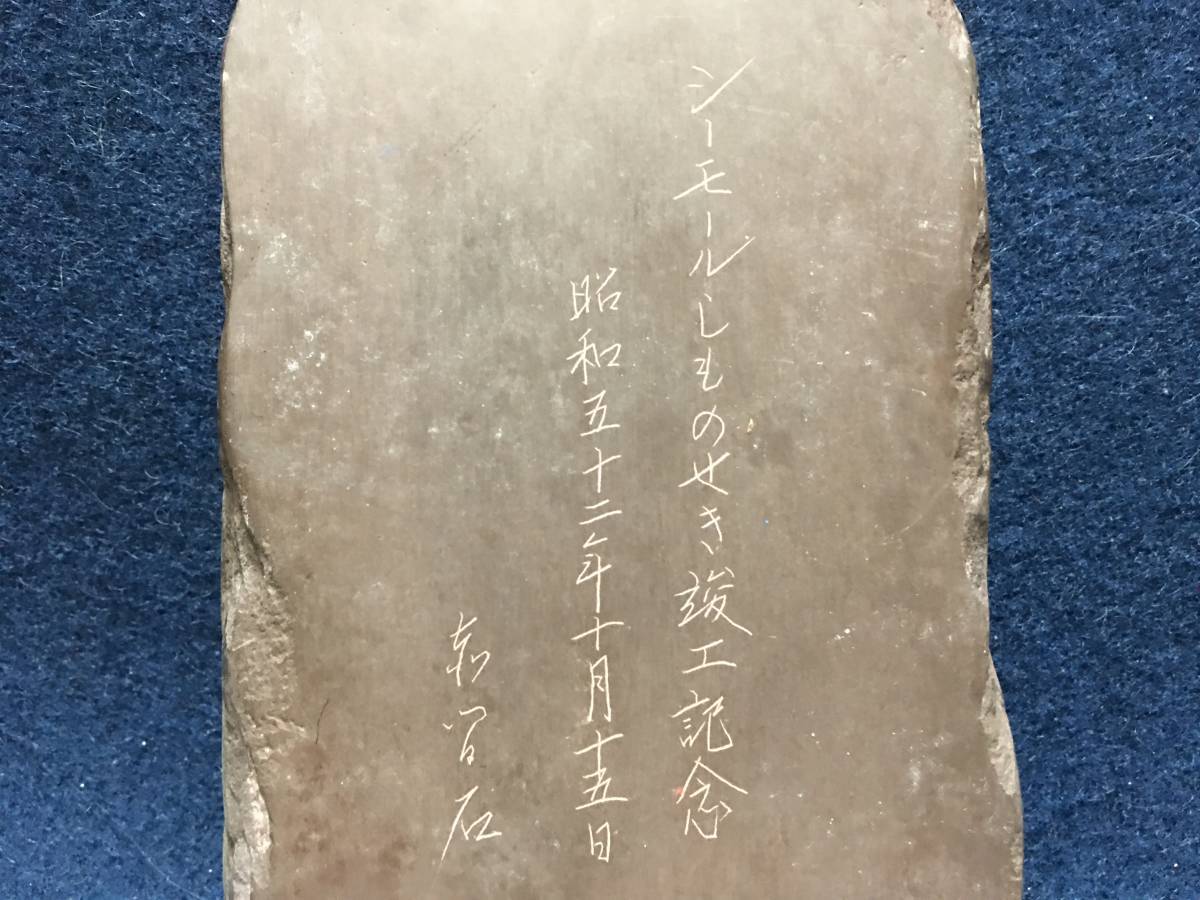 シーモールしものせき竣工記念
昭和五十二年十月十五日
赤間石